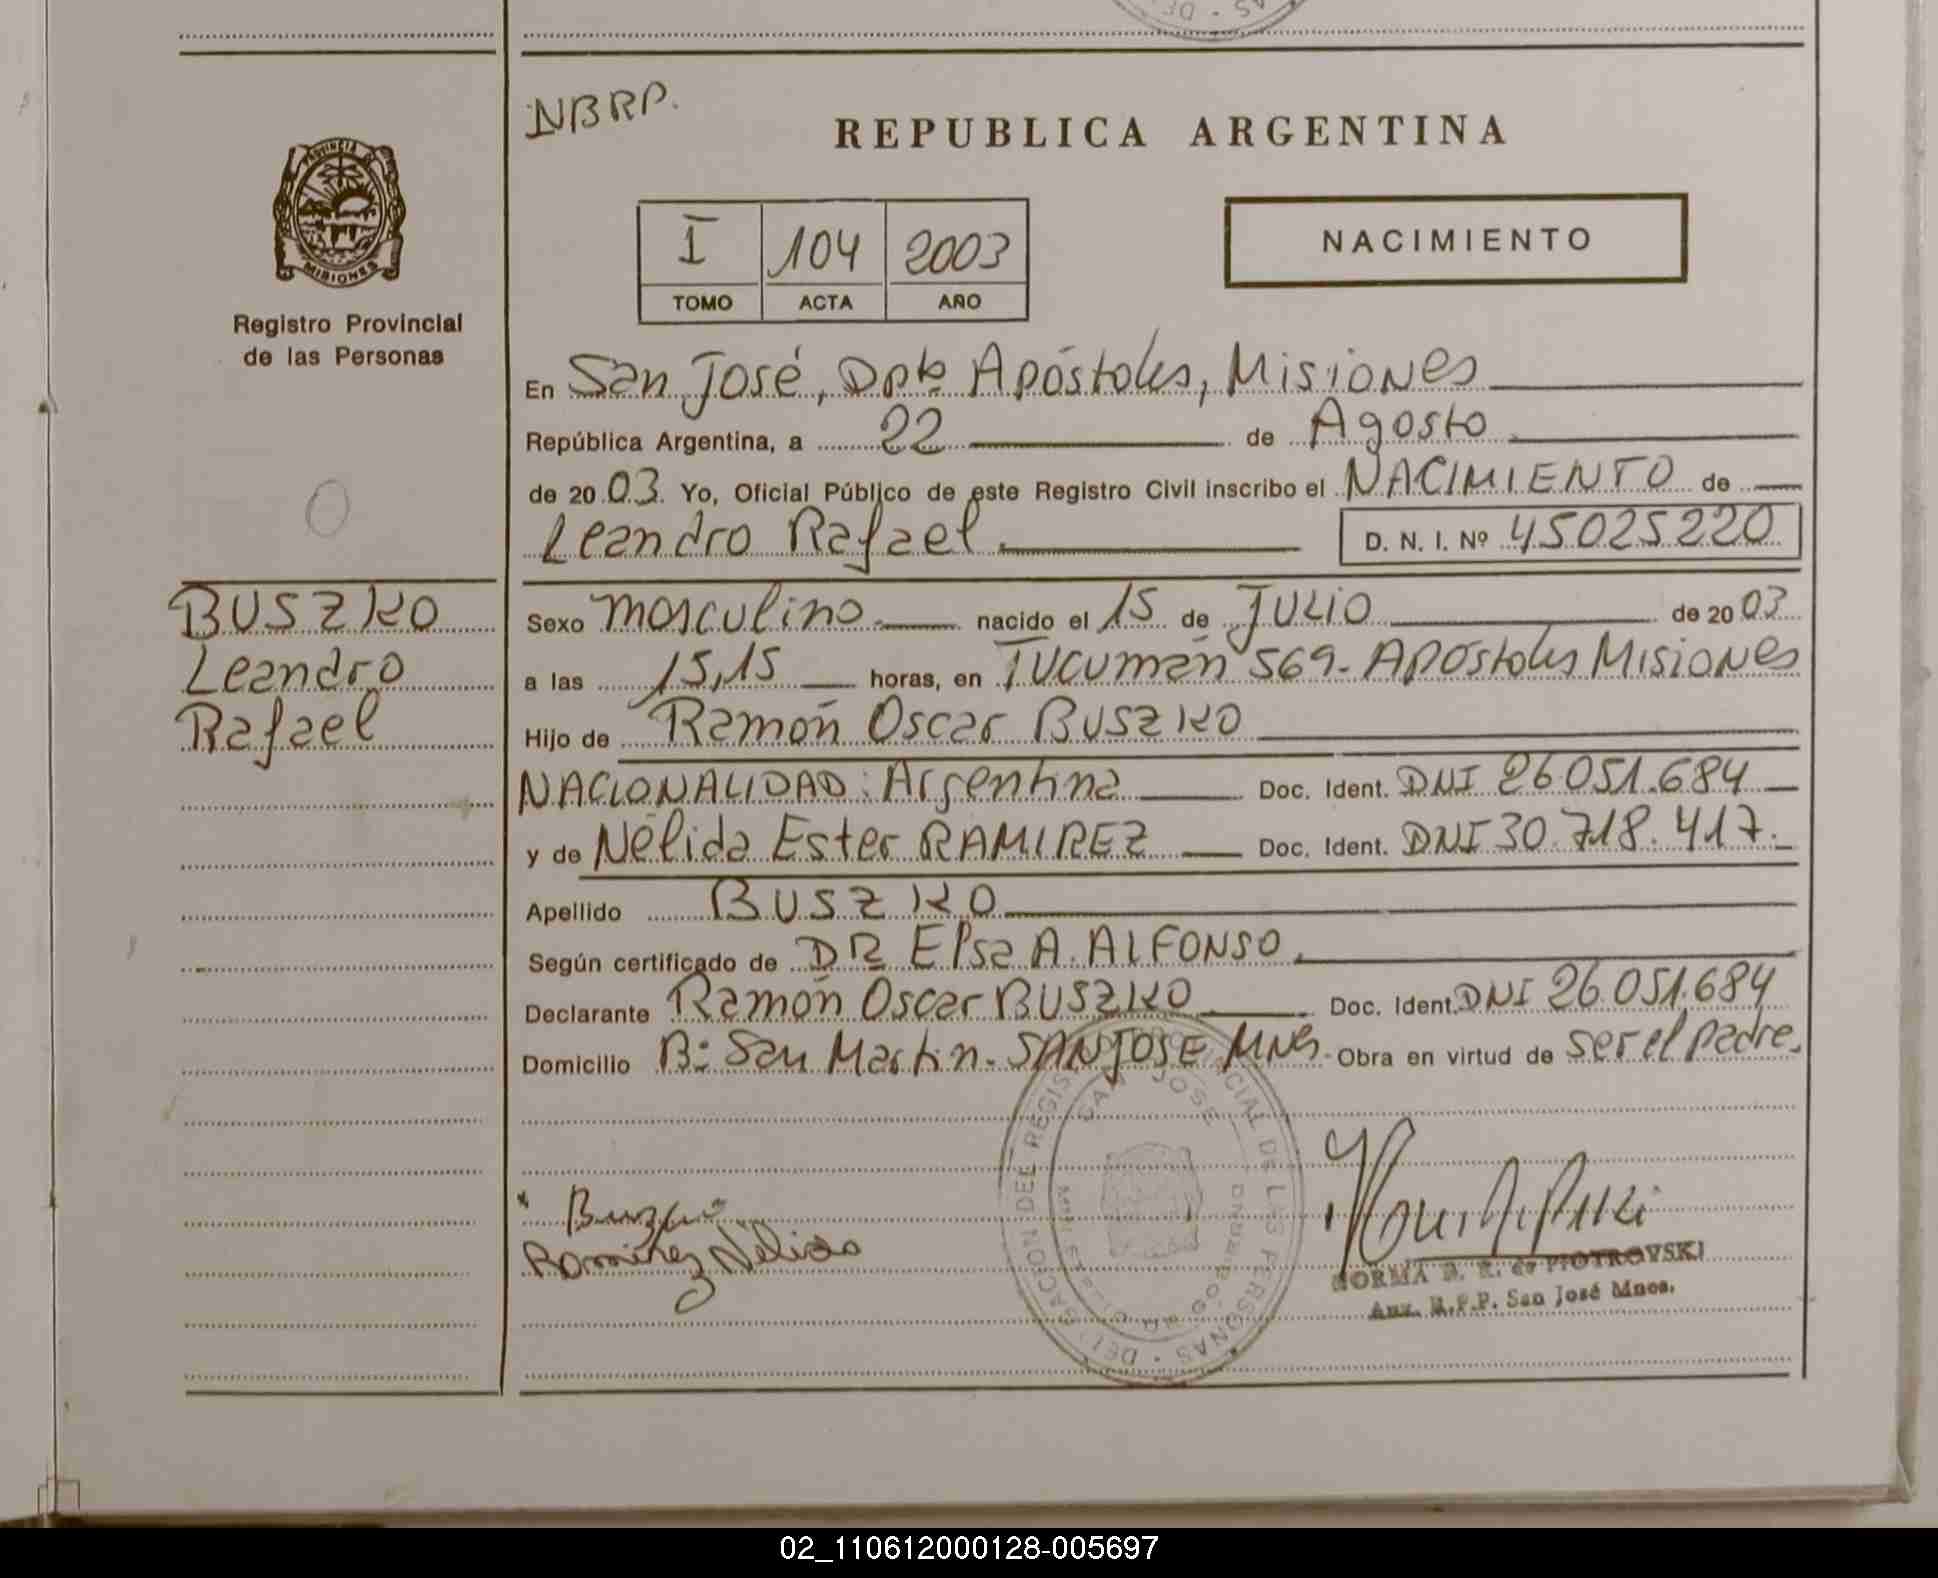 NBRP.
REPUBLICA ARGENTINA
PROVINCIA DE
MISIONES
Registro Provincial
de las Personas
I 104 2003
TOMO ACTA AÑO
NACIMIENTO
En San José, Dpto Apóstoles, Misiones
República Argentina, a 22 de Agosto
de 20 03. Yo, Oficial Público de este Registro Civil inscribo el NACIMIENTO de
Leandro Rafael D. N. I. Nº 45025220
BUSZKO
Leandro
Rafael
Sexo masculino nacido el 15 de JULIO de 20 03
a las 15,15 horas, en Tucumán 569 - Apóstoles Misiones
Hijo de Ramón Oscar BUSZKO
NACIONALIDAD: Argentina Doc. Ident. DNI 26.051.684
y de Nélida Ester RAMIREZ Doc. Ident. DNI 30.718.417.
Apellido BUSZKO
Según certificado de DRa Elsa A. ALFONSO
Declarante Ramón Oscar BUSZKO Doc. Ident. DNI 26.051.684
Domicilio Bº San Martin - SAN JOSE Mnes. Obra en virtud de ser el padre.
DELEGACION DEL REGISTRO PROVINCIAL DE LAS PERSONAS
SAN JOSE
MISIONES
Ramirez Nelida
NORMA B. R. de PIOTROVSKI
Aux. R.P.P. San José Mnes.
02_110612000128-005697